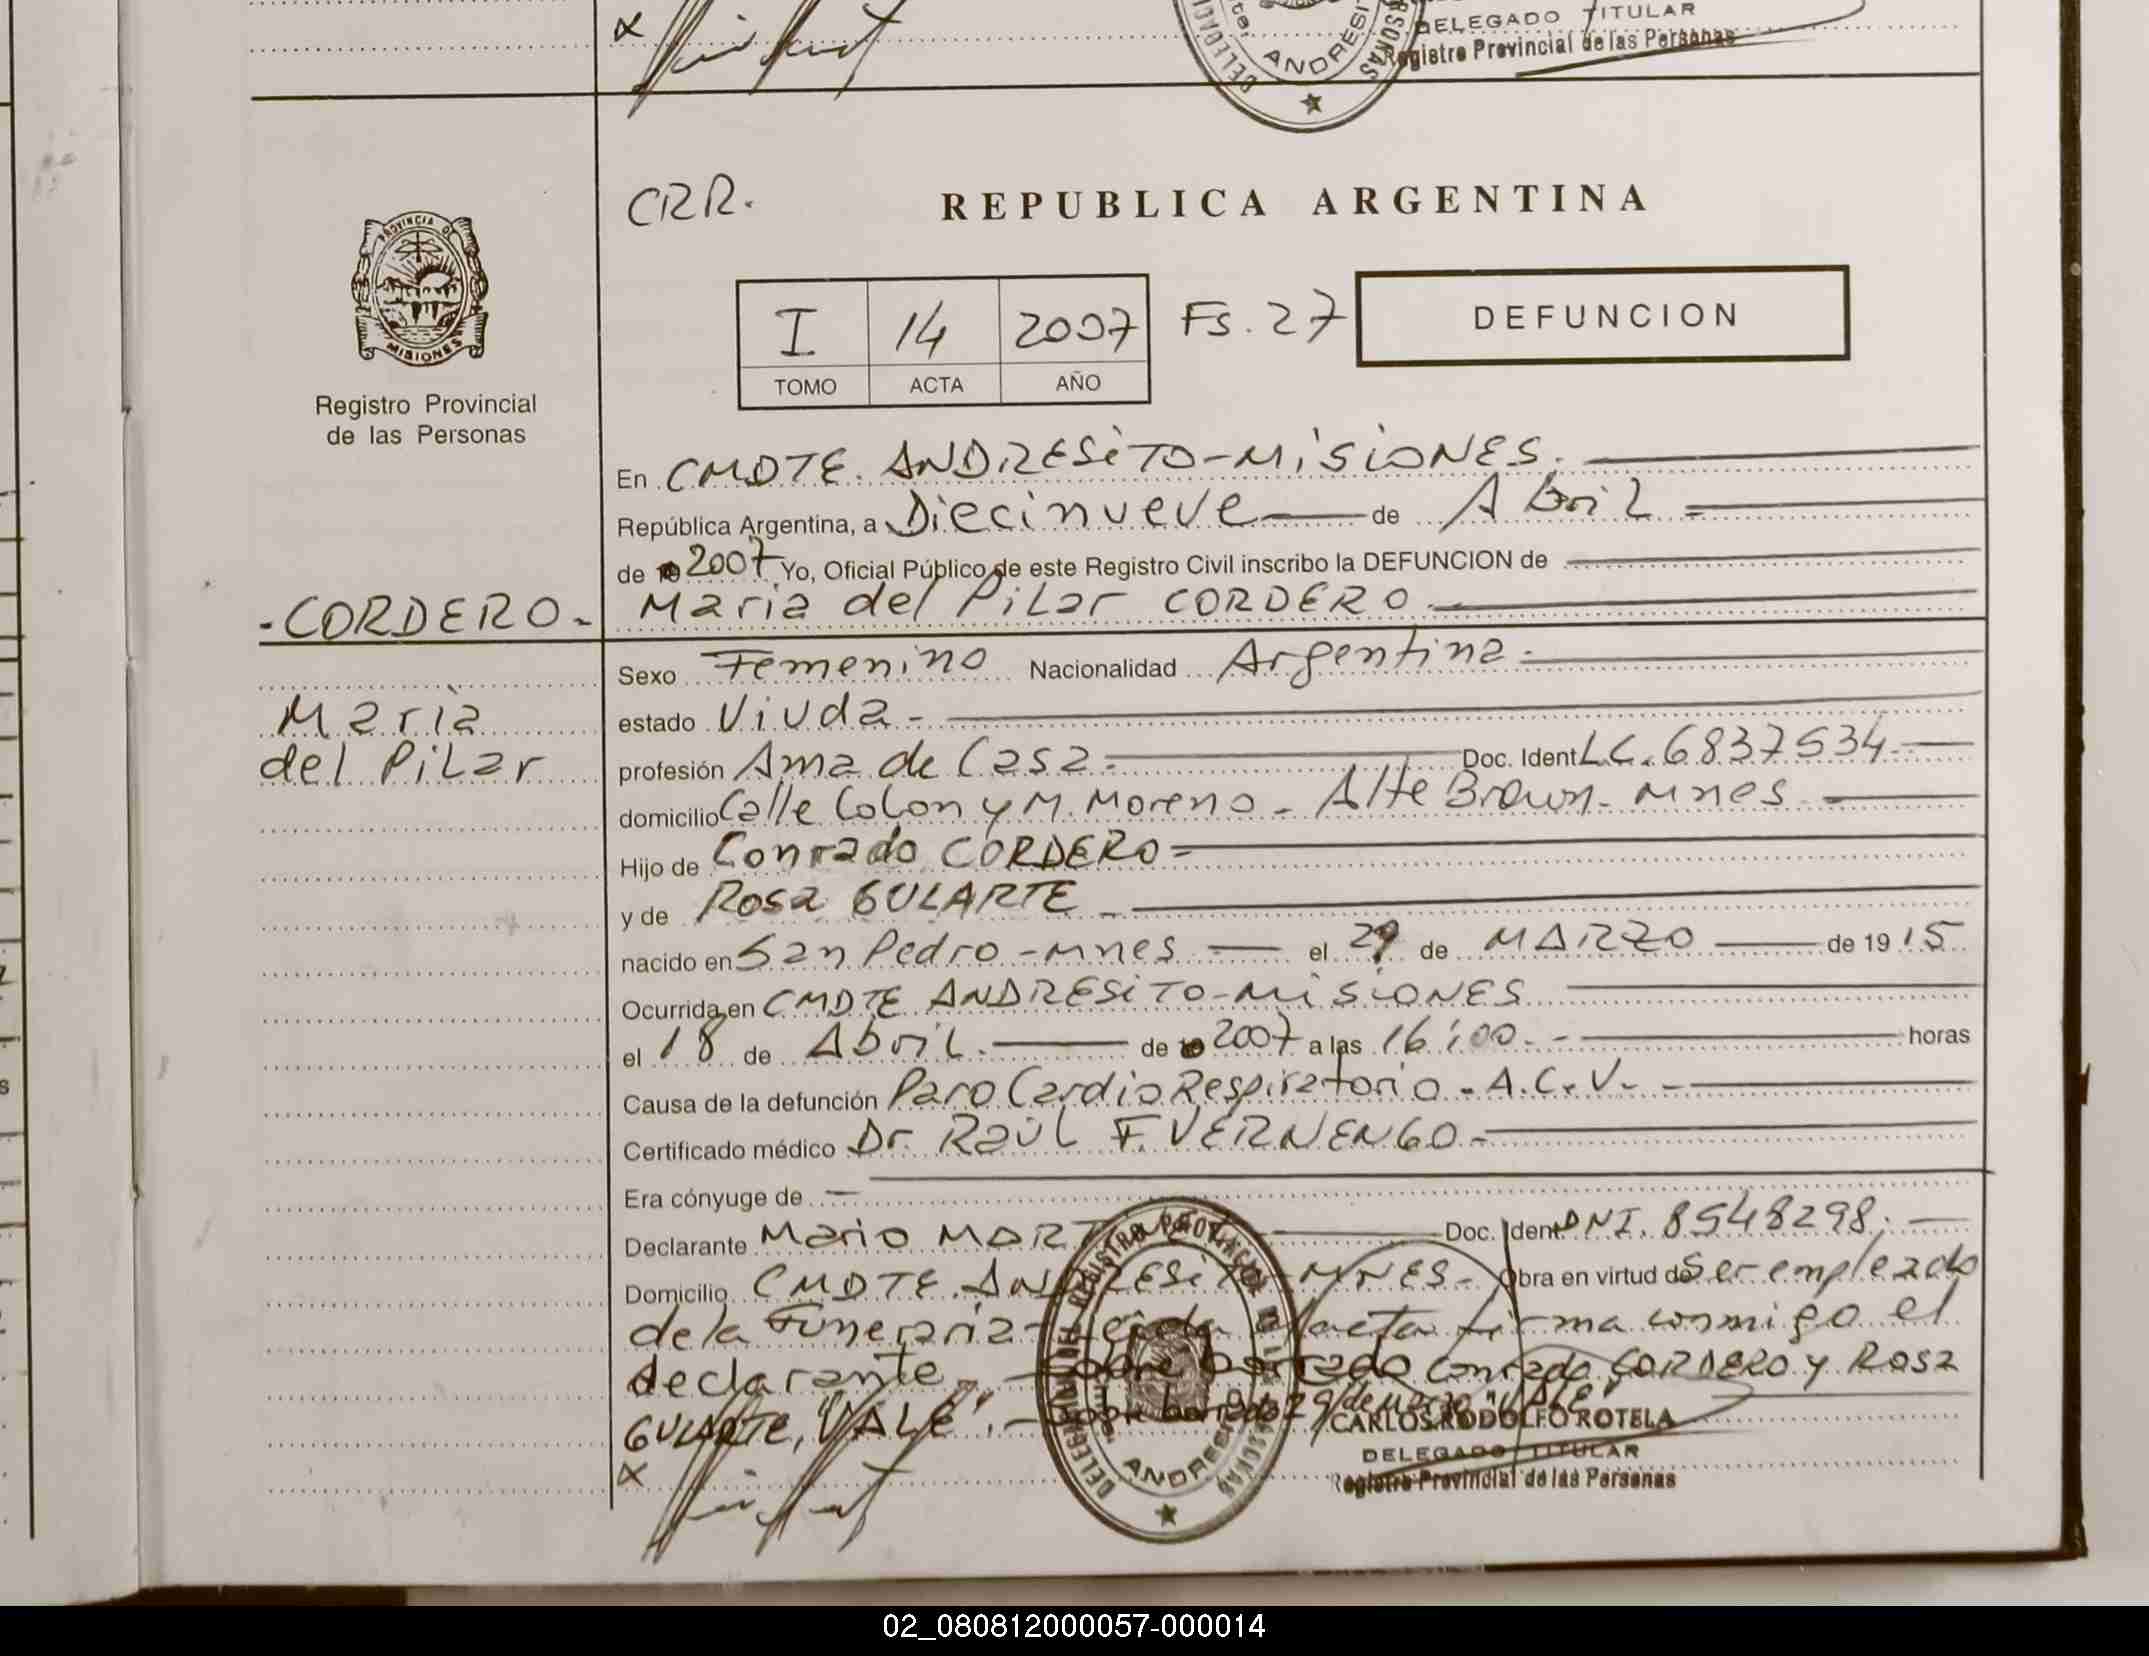 DELEGADO TITULAR
Registro Provincial de las Personas
ANDRESIT
PROVINCIA DE
MISIONES
Registro Provincial
de las Personas
CRR.
REPUBLICA ARGENTINA
I 14 2007 Fs. 27 DEFUNCION
TOMO ACTA AÑO
En CMDTE. ANDRESITO-MISIONES.
República Argentina, a Diecinueve de Abril
de 2007 Yo, Oficial Público de este Registro Civil inscribo la DEFUNCION de
-CORDERO- Maria del Pilar CORDERO
Sexo Femenino Nacionalidad Argentina
Maria estado Viuda
del Pilar profesión Ama de Casa Doc. Ident L.C. 6837534
domicilio Calle Colon y M. Moreno - Alte Brown - Mnes
Hijo de Conrado CORDERO
y de Rosa GULARTE
nacido en San Pedro - Mnes el 29 de MARZO de 1915
Ocurrida en CMDTE ANDRESITO-MISIONES
el 18 de Abril de 2007 a las 16:00 horas
Causa de la defunción Paro CardioRespiratorio - A.C.V.
Certificado médico Dr. Raúl F. VERNENGO
Era cónyuge de
Declarante Mario MART Doc. Ident DNI. 8548298
Domicilio CMDTE. ANDRESITO-MNES- Obra en virtud de Ser empleado
de la Funeraria - Leída el acta firma conmigo el
declarante - Sobre borrado Conrado CORDERO y Rosa
GULARTE, "VALE". - Sobre borrado 29 de marzo "VALE"
CARLOS RODOLFO ROTELA
DELEGADO TITULAR
Registro Provincial de las Personas
02_080812000057-000014